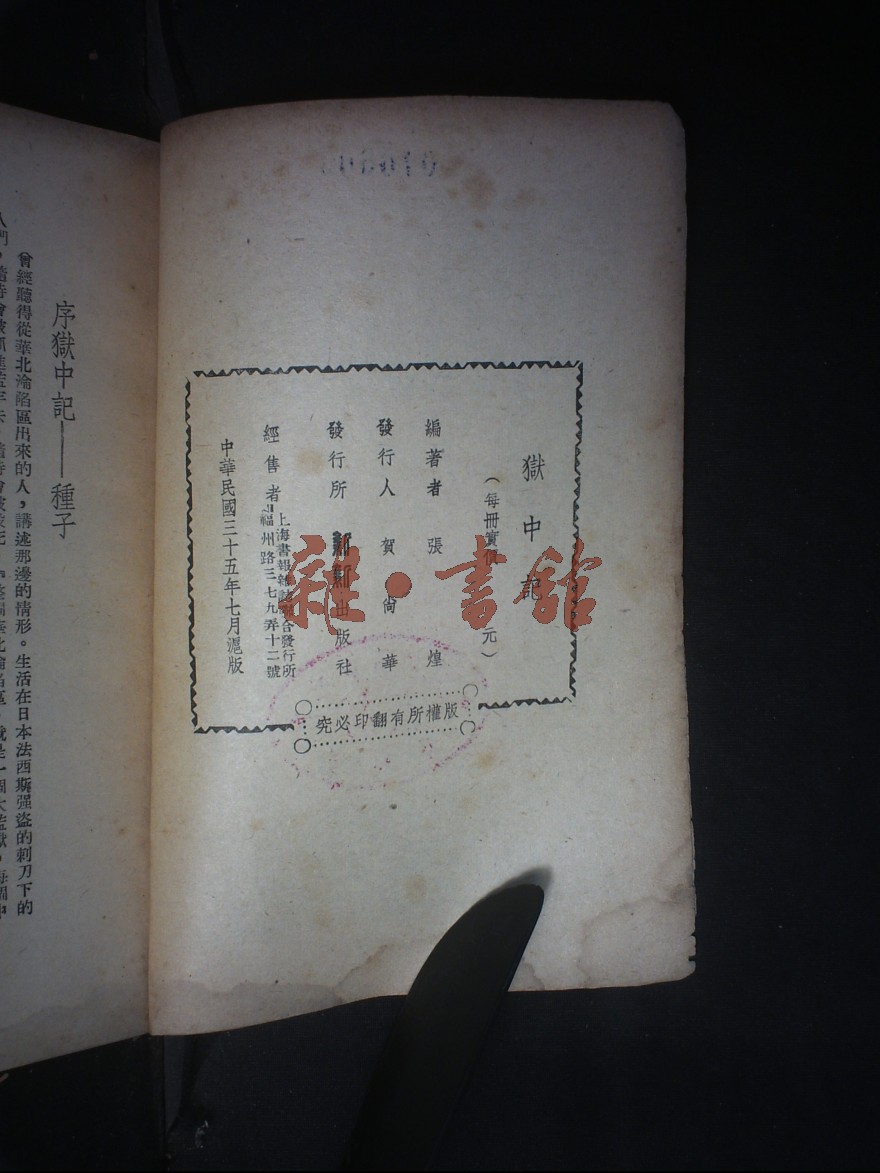 獄中記
(每冊實價 元)
編著者 張煌
發行人 賀尙華
發行所 出版社
經售者 上海書報雜誌聯合發行所
福州路三七九弄十二號
中華民國三十五年七月滬版
版權所有翻印必究
雜·書館
序獄中記——種子
曾經聽得從華北淪陷區出來的人，講述那邊的情形。生活在日本法西斯强盜的刺刀下的